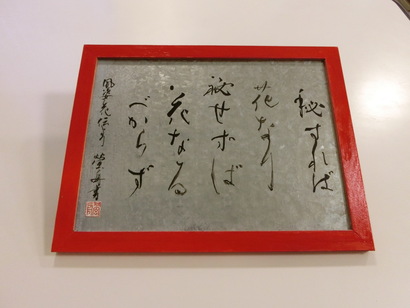 秘すれば
花なり
秘せずば
花なる
べからず
風姿花伝より